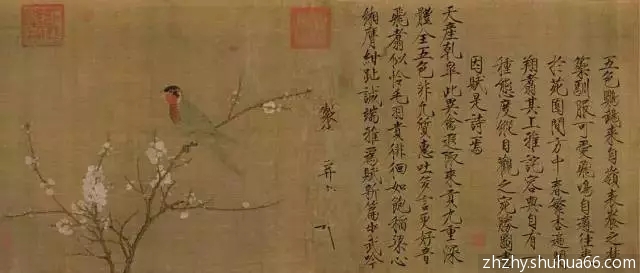 五色鸚鵡來自嶺表養之禁
籞馴服可愛飛鳴自適往來
於苑囿間方中春繁杏遍
翔翥其上雅詫容與自有
種態度縱目觀之宛勝圖
因賦是詩焉
天產乾皋此異禽遐陬來貢九重深
體全五色非凡質惠吐多言更好音
飛翥似憐毛羽貴徘徊如飽稻粱心
緗膺紺趾誠端雅為賦新篇步武吟
zhzhy.shuhua66.com